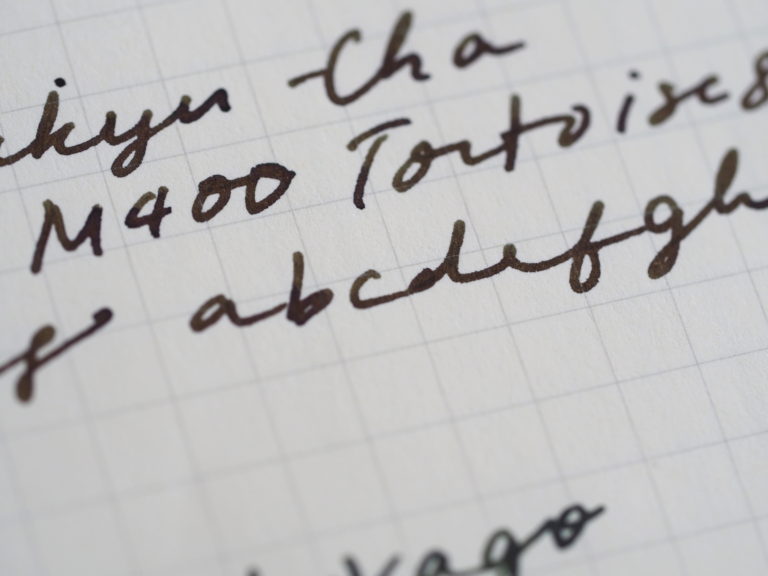 ikyu-Cha
M400 Tortoise
abcdefgh